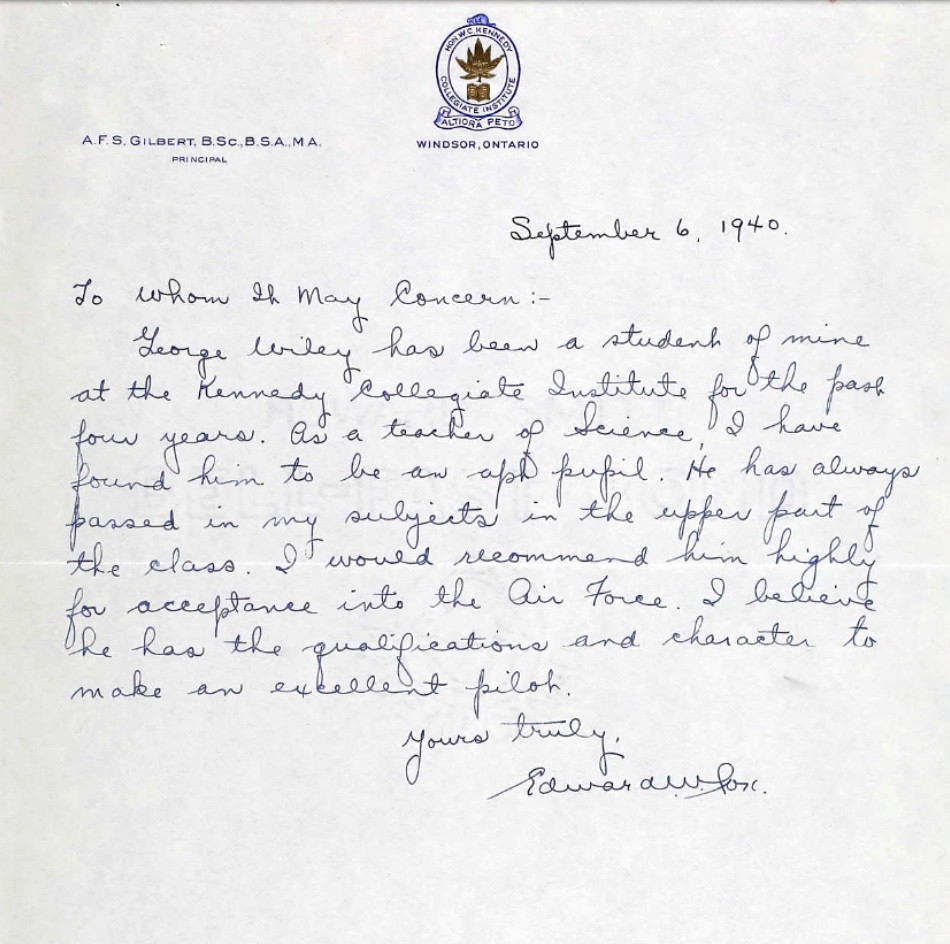 HON. W.C. KENNEDY
COLLEGIATE INSTITUTE
ALTIORA PETO
A.F.S. GILBERT, B.SC., B.S.A., M.A.
PRINCIPAL
WINDSOR, ONTARIO
September 6, 1940.
To Whom It May Concern:-
George Wiley has been a student of mine
at the Kennedy Collegiate Institute for the past
four years. As a teacher of Science, I have
found him to be an apt pupil. He has always
passed in my subjects in the upper part of
the class. I would recommend him highly
for acceptance into the Air Force. I believe
he has the qualifications and character to
make an excellent pilot.
Yours truly,
Edward W. Fox.